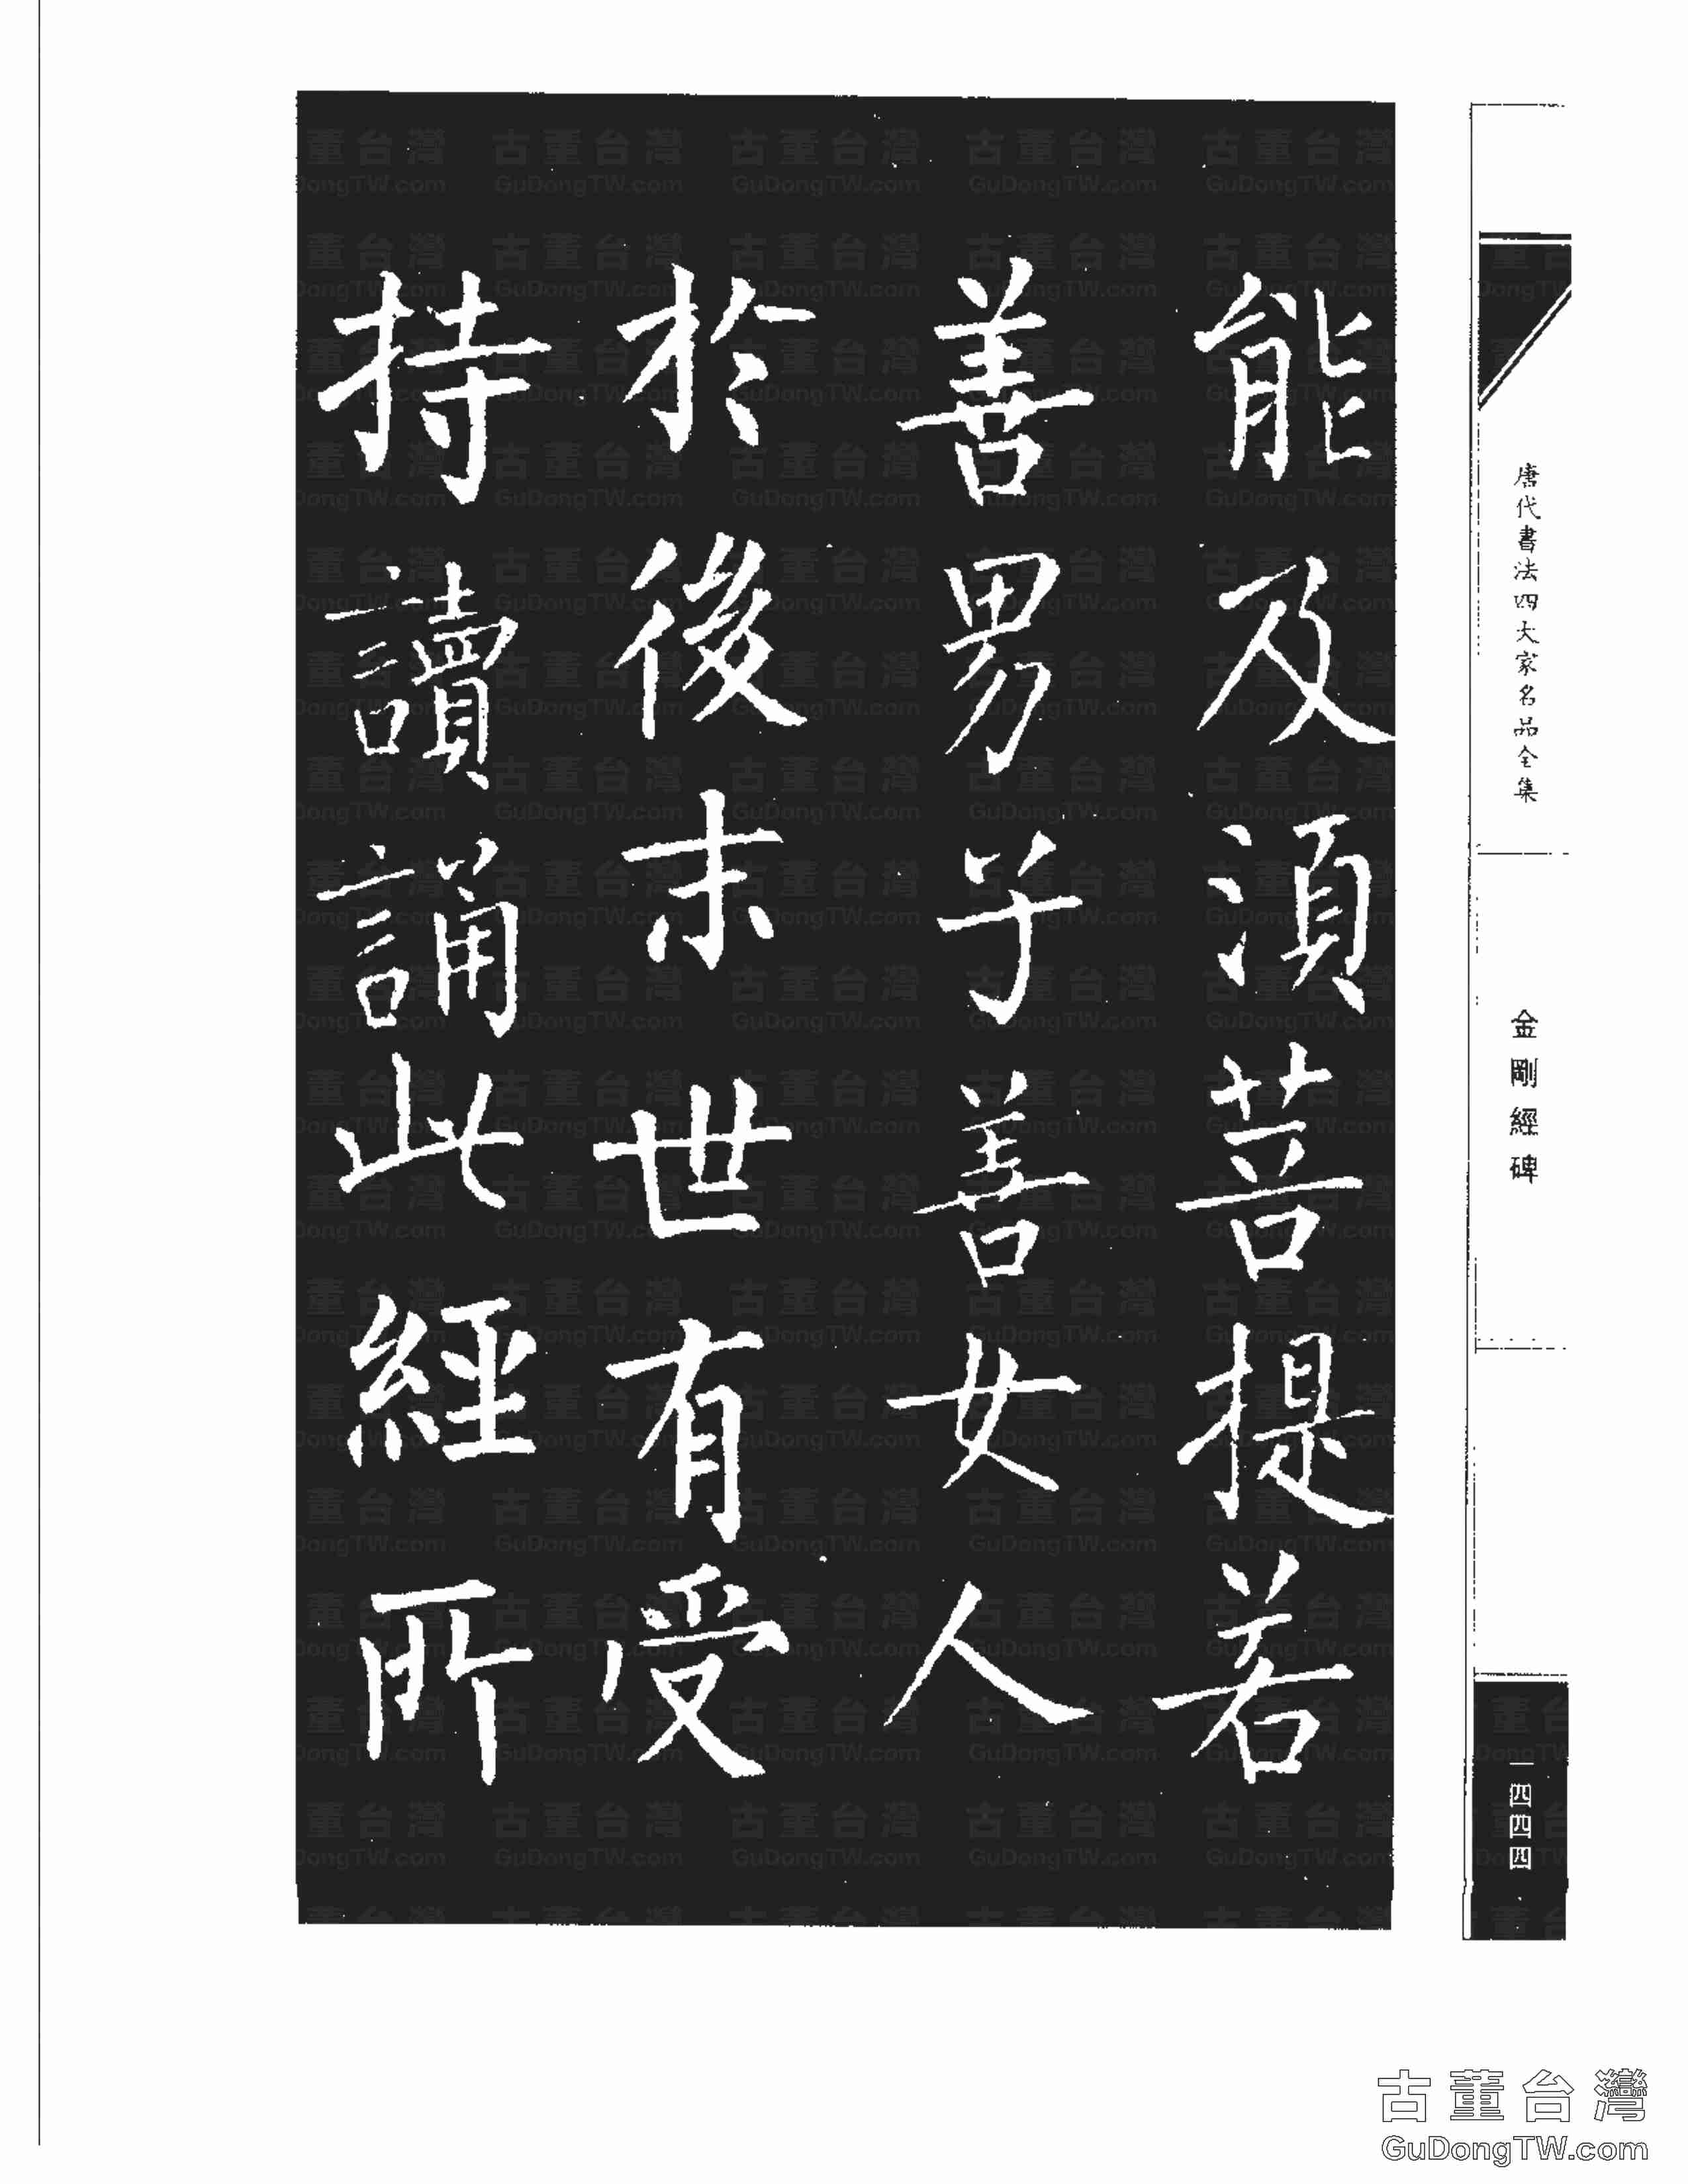 能及須菩提若
善男子善女人
於後末世有受
持讀誦此經所
唐代書法四大家名品全集
金剛經碑
一四四四
古董台灣
GuDongTW.com